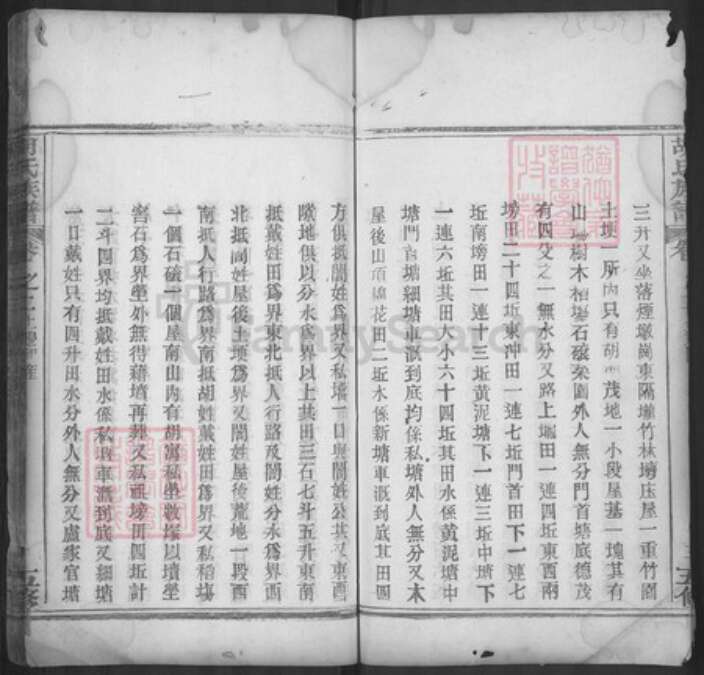 三升又坐落煙墩崗東隔壠竹林塆庄屋一重竹園
土壩一所內只有胡茂地一小段屋基一塊其有
山場樹木相塲石磙菜園外人無分門首塘底德茂
有四分之一無水分又路上塝田一連四坵東西兩
塝田二十四坵東沖田一連七坵門首田下一連七
坵南塝田一連十三坵黃泥塘下一連三坵中塘下
一連六坵其田大小六十四坵其田水係黃泥塘中
塘門首塘細塘車溉到底均係私塘外人無分又木
屋後山頂棉花田二坵水係新塘車溉到底其田四
方俱抵闇姓爲界又私塘一口與闇姓公共又東西
陰地俱以分水爲界以上共田三石七斗五升東南
抵戴姓田爲界東北抵人行路及闇姓分水爲界西
北抵闇姓屋後土墈爲界又闇姓屋後荒地一段西
南抵人行路爲界南抵胡姓戴姓田爲界又私稻塲
一個石磙一個屋南山內有胡寓私塋數塚以墳塋
窖石爲界塋外無得藉墳再葬又私祖塝田四坵計
一斗四界均抵戴姓田水係私堰車溉到底又細塘
一口戴姓只有四升田水分外人無分又盧家官塘
胡氏族譜
卷之二
五修
胡氏族譜
卷
五修
FamilySearch